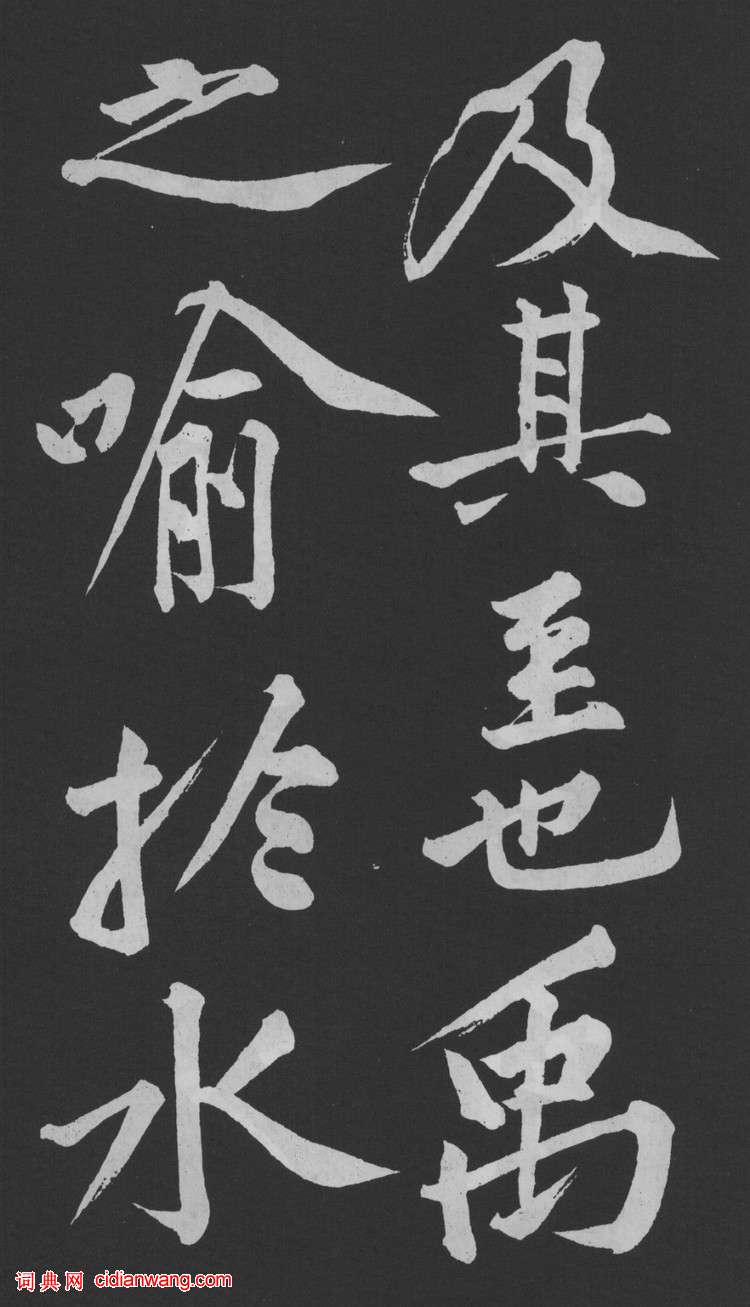 及其至也禹
之喻於水
词典网 cidianwang.com